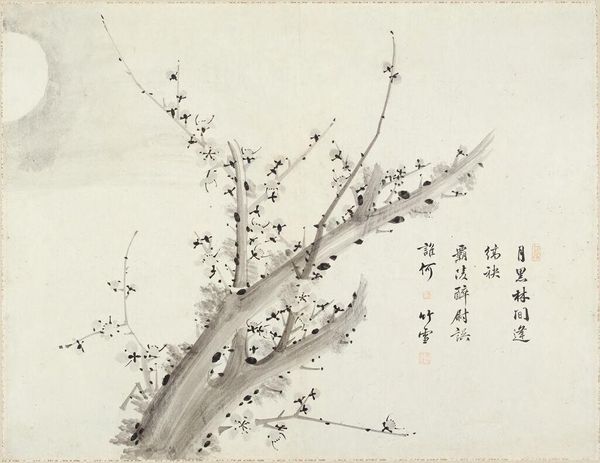 月黑林間逢
縞袂
霸陵醉尉誤
誰何 竹雪